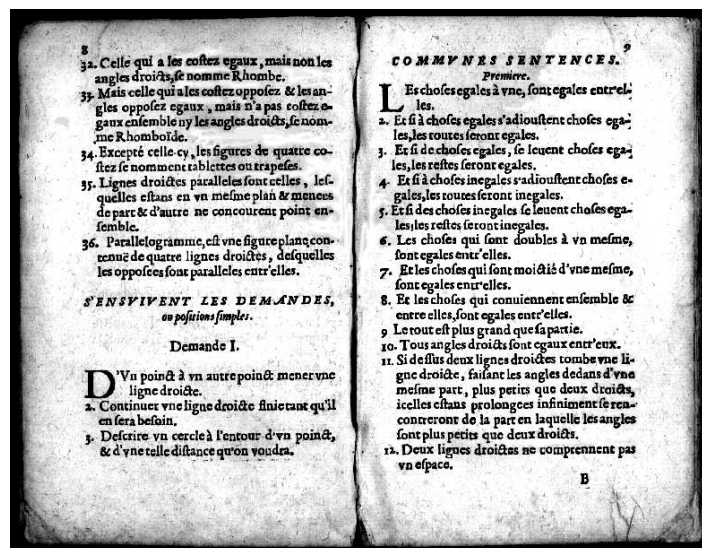 8
32. Celle qui a les costez egaux, mais non les
angles droicts, se nomme Rhombe.
33. Mais celle qui a les costez opposez & les an-
gles opposez egaux, mais n'a pas costez e-
gaux ensemble ny les angles droicts, se nom-
me Rhomboïde.
34. Excepté celle-cy, les figures de quatre co-
stez se nomment tablettes ou trapeses.
35. Lignes droictes paralleles sont celles, les-
quelles estans en vn mesme plan & menees
de part & d'autre ne concourent point en-
semble.
36. Parallelogramme, est vne figure plane con-
tenuë de quatre lignes droictes, desquelles
les opposees sont paralleles entr'elles.
S'ENSVIVENT LES DEMANDES,
ou positions simples.
Demande I.
D'Vn poinct à vn autre poinct mener vne
ligne droicte.
2. Continuer vne ligne droicte finie tant qu'il
en sera besoin.
3. Descrire vn cercle à l'entour d'vn poinct,
& d'vne telle distance qu'on voudra.
9
COMMVNES SENTENCES.
Premiere.
LEs choses egales à vne, sont egales entr'el-
les.
2. Et si à choses egales s'adioustent choses ega-
les, les toutes seront egales.
3. Et si de choses egales, se leuent choses ega-
les, les restes seront egales.
4. Et si à choses inegales s'adioustent choses e-
gales, les toutes seront inegales.
5. Et si des choses inegales se leuent choses ega-
les, les restes seront inegales.
6. Les choses qui sont doubles à vn mesme,
sont egales entr'elles.
7. Et les choses qui sont moictié d'vne mesme,
sont egales entr'elles.
8. Et les choses qui conuiennent ensemble &
entre elles, sont egales entr'elles.
9 Le tout est plus grand que sa partie.
10. Tous angles droicts sont egaux entr'eux.
11. Si dessus deux lignes droictes tombe vne li-
gne droicte, faisant les angles dedans d'vne
mesme part, plus petits que deux droicts,
icelles estans prolongees infiniment se ren-
contreront de la part en laquelle les angles
sont plus petits que deux droicts.
12. Deux lignes droictes ne comprennent pas
vn espace.
B